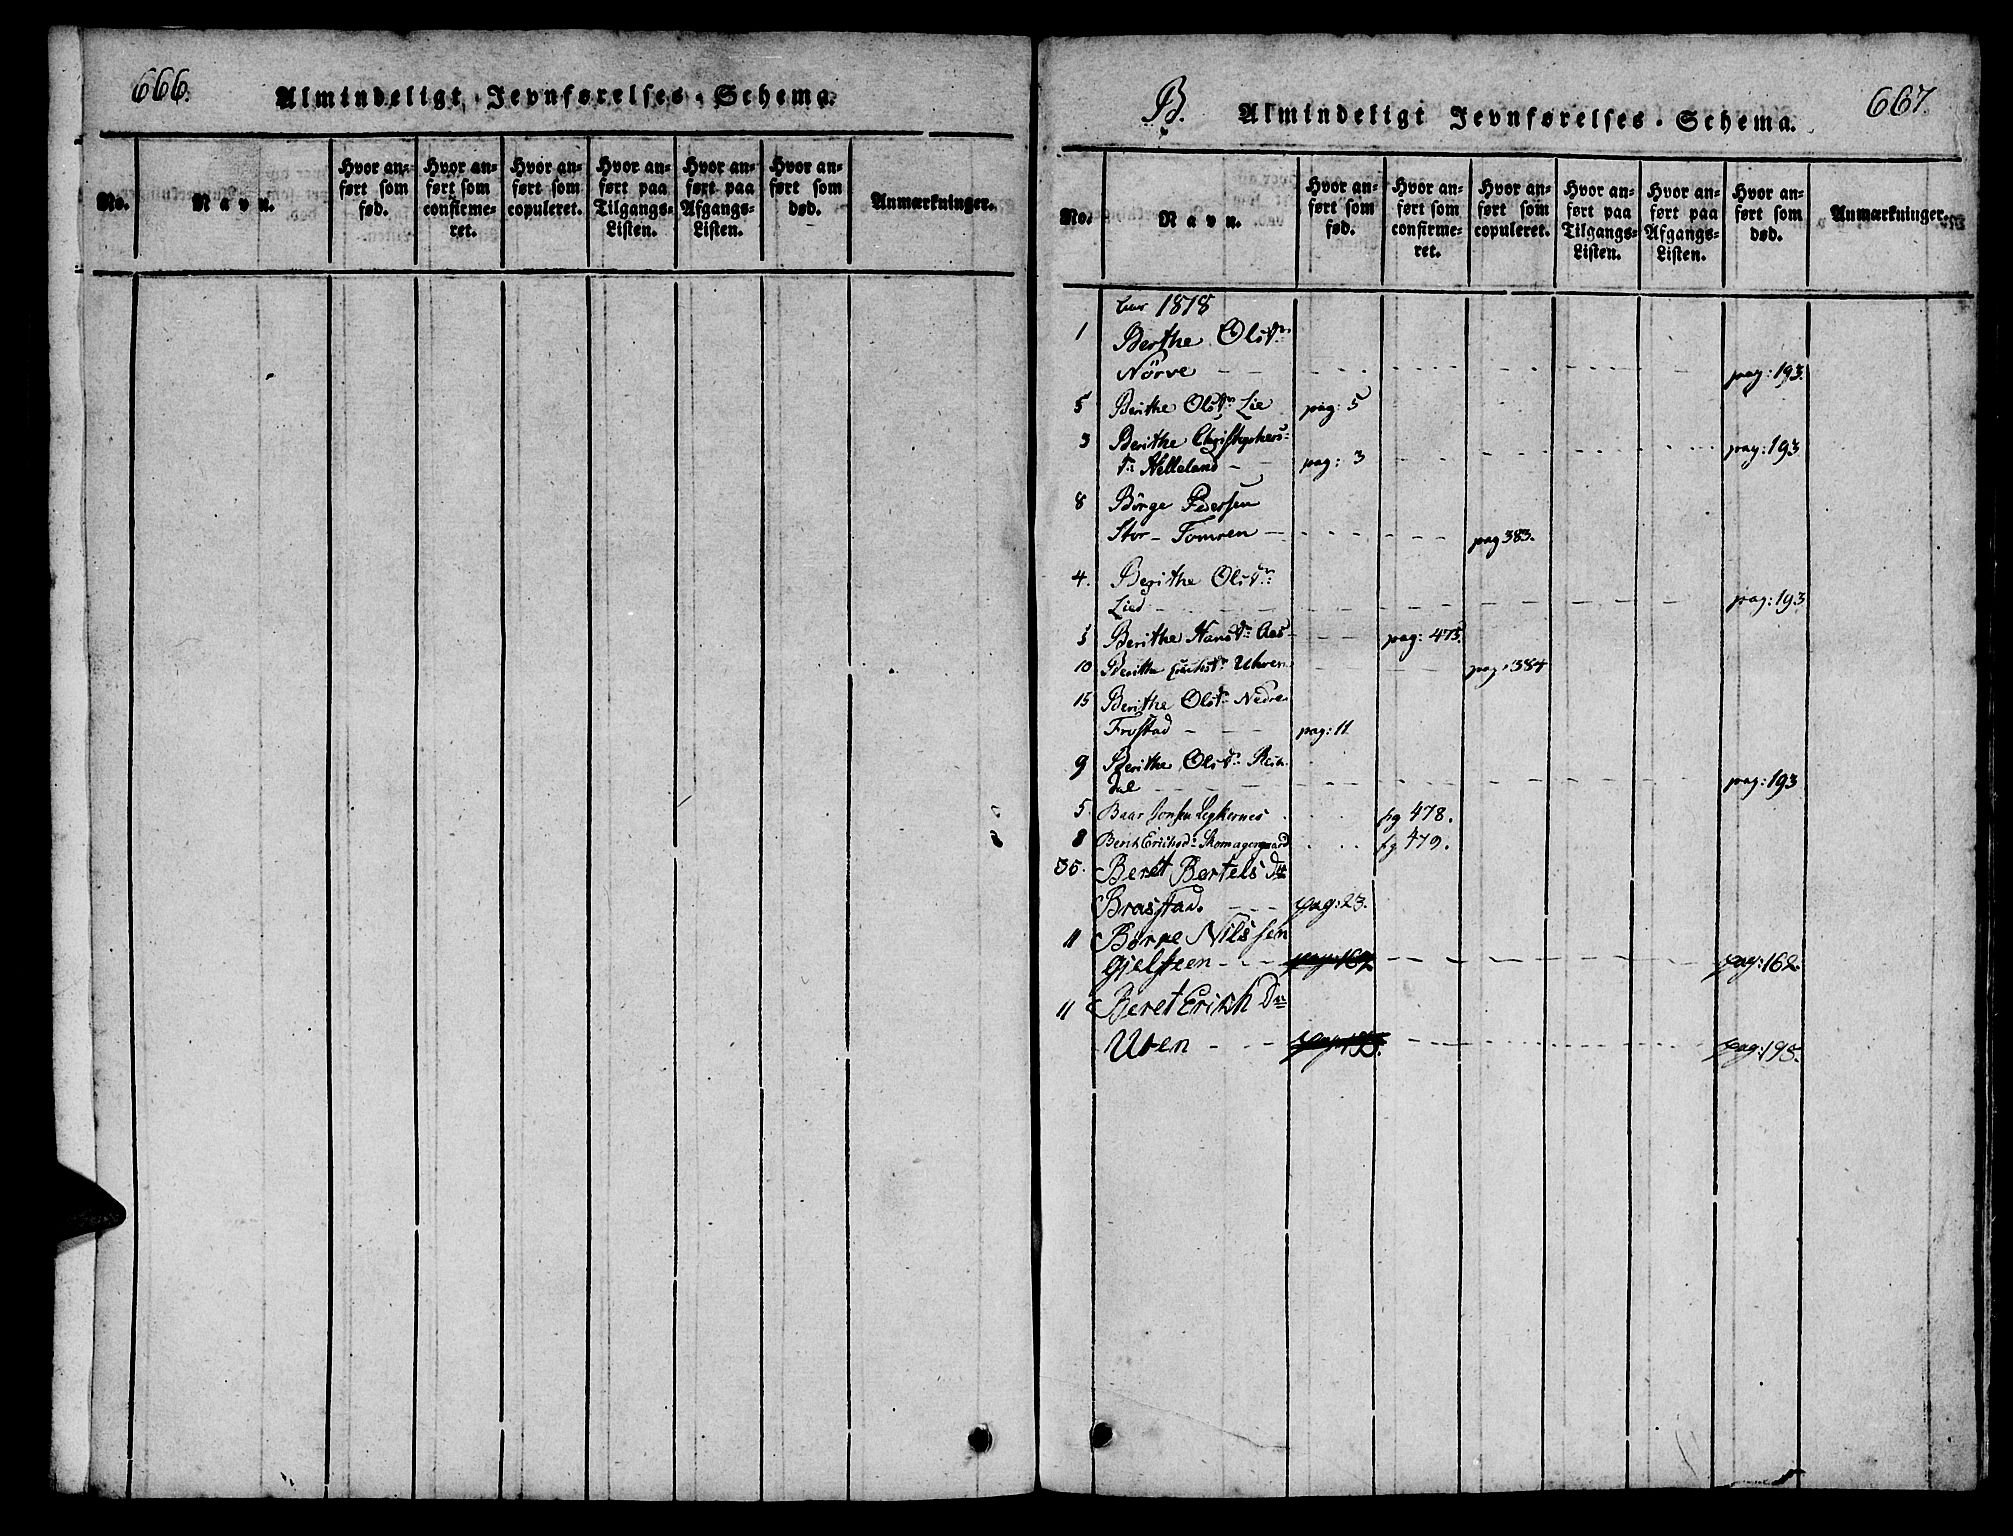 666.
Almindeligt Jevnførelses-Schema.
No.
Navn.
Hvor an-
ført som
fød.
Hvor an-
ført som
confirme-
ret.
Hvor an-
ført som
copuleret.
Hvor an-
ført paa
Tilgangs-
Listen.
Hvor an-
ført paa
Afgangs-
Listen.
Hvor an-
ført som
død.
Anmærkninger.
B.
Almindeligt Jevnførelses-Schema.
667.
No.
Navn.
Hvor an-
ført som
fød.
Hvor an-
ført som
confirme-
ret.
Hvor an-
ført som
copuleret.
Hvor an-
ført paa
Tilgangs-
Listen.
Hvor an-
ført paa
Afgangs-
Listen.
Hvor an-
ført som
død.
Anmærkninger.
1818
1 Berthe Olsdr
Nörve pag: 193.
5 Berithe Olsdr Lie pag: 5
3 Berithe Christophers-
dr Helleland pag: 3 pag: 193
8 Börge Pedersen
Stor-Tomren pag 383.
4. Berithe Olsdr
Lied pag: 193
Berithe Hansdr Aas pag: 475.
10 Berithe Uhren pag: 384
15 Berithe Olsdr Nedre
Frostad pag: 11
9 Berithe Olsdr Rein-
dal pag: 193
5 Baar Jonsen pg 478.
8 Berit Erichsdr Skomagergaard pg 479.
35. Beret Bertels Dtr
Brastad. pag: 23.
11 Børre Nilssen
Gjelsteen pag: 162 pag: 162.
11 Beret Erich Dtr
Uren pag: 195. pag: 195.